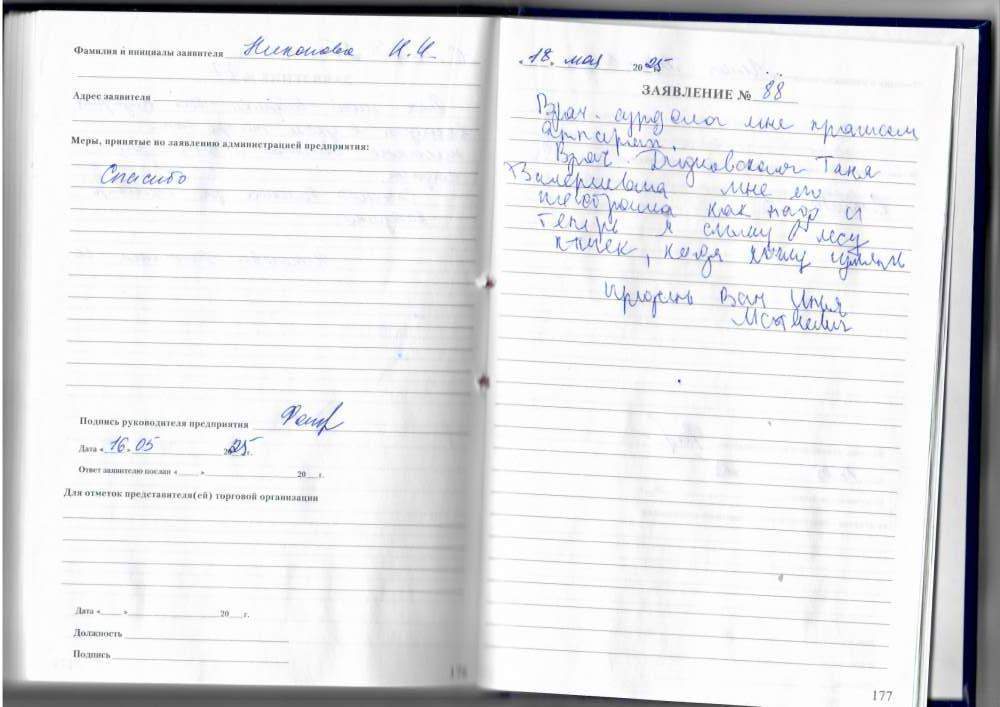 Фамилия и инициалы заявителя Никонова Н.И.
Адрес заявителя
Меры, принятые по заявлению администрацией предприятия:
Спасибо
Подпись руководителя предприятия
Дата « 16.05 2025 г.
Ответ заявителю послан « » 20 г.
Для отметок представителя(ей) торговой организации
Дата « » 20 г.
Должность
Подпись
176
18. мая 2025
ЗАЯВЛЕНИЕ № 88
Врач. сурдолог мне
Врач. Дидковская Таня
Валериевна мне его
как надо и
теперь я слышу
птичек, хочу
Вам
177